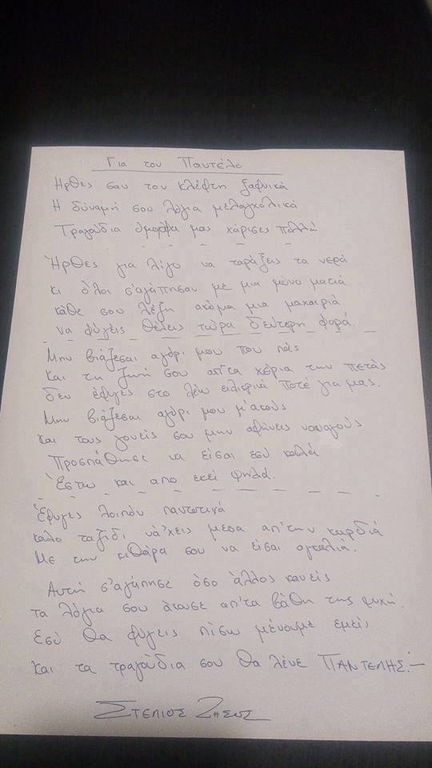 Για τον Παντέλο
Ήρθες σαν τον κλέφτη ξαφνικά
Η δύναμή σου λόγια μελαγχολικά
Τραγούδια όμορφα μας χάρισες πολλά
Ήρθες για λίγο να ταράξεις τα νερά
κι όλοι σ'αγάπησαν με μια μόνο ματιά
κάθε σου λέξη ακόμα μια μαχαιριά
να φύγεις θέλεις τώρα δεύτερη φορά
Μην βιάζεσαι αγόρι μου που πας
Και τη ζωή σου απ'τα χέρια την πετάς
δεν έφυγες στο λέω ειλικρινά ποτέ για μας.
Μην βιάζεσαι αγόρι μου μ'ακούς
Και τους γονείς σου μην αφήνεις ναυαγούς
Προσπάθησε να είσαι εσύ καλά
Έστω και απο εκεί ψηλά.
Έφυγες λοιπόν παντοτινά
καλό ταξίδι νά'χεις μέσα απ'την καρδιά
Με την κιθάρα σου να είσαι αγκαλιά.
Αυτή σ'αγάπησε όσο άλλος κανείς
τα λόγια σου άκουσε απ'τα βάθη της ψυχή
Εσύ θα φύγεις πίσω μένουμε εμείς
Και τα τραγούδια σου θα λένε ΠΑΝΤΕΛΗΣ.-
ΣΤΕΛΙΟΣ ΖΗΣΟΣ